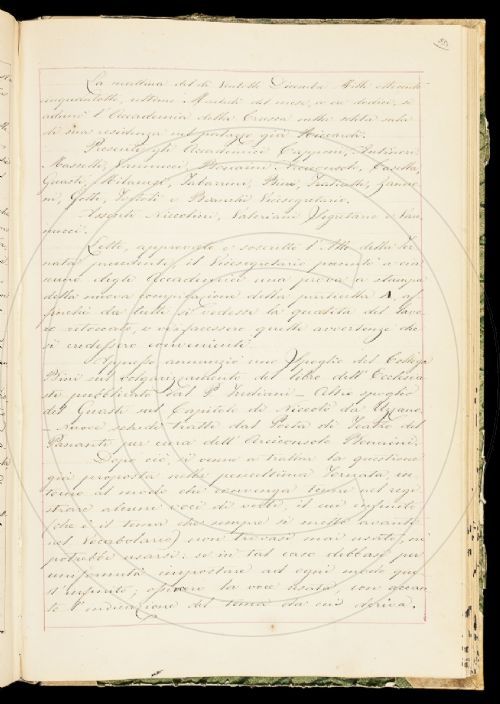 La mattina del dì Ventotto Dicembre Mille ottocento
cinquantotto, ultimo Martedì del mese, a ore dodici, si
adunò l'Accademia della Crusca nella solita sala
di sua residenza nel palazzo già Riccardi.
Presenti gli Accademici Capponi,
Masselli, Arciconsolo, Casella,
Guasti, Milanesi, Tabarrini, Bini,
ni, Gotti, e Bianchi Vicesegretario.
Assenti Niccolini, Valeriani Segretario e Van
nucci.
Letto, approvato e soscritto l'Atto della Tor
nata precedente, il Vicesegretario presentò a cia
scuno degli Accademici una prova a stampa
della nuova compilazione della particella A, af
finchè da tutti si vedesse la qualità del lavo
ro ritoccato, e vi facessero quelle avvertenze che
si credessero convenienti.
Appresso annunziò uno Spoglio del Collega
Bini sul volgarizzamento del libro dell'Ecclesia
ste pubblicato dal P. – Altro spoglio
del Guasti sul Capitolo di Niccolò da Uzzano
– Nuove schede tratte dal Poeta di Teatro del
Passanti per cura dell'Arciconsolo
Dopo ciò, si venne a trattare la questione
già proposta nella penultima Tornata, in
torno al modo che convenga tenere nel regi
strare alcune voci di verbi, il cui infinito
(che è il tema che sempre si mette avanti
nel Vocabolario) non trovasi mai usato, nè
potrebbe usarsi: se in tal caso debbasi per
uniformità impostare ad ogni modo quel
l'infinito; ovvero la voce usata, con accan
to l'indicazione del tema da cui deriva.